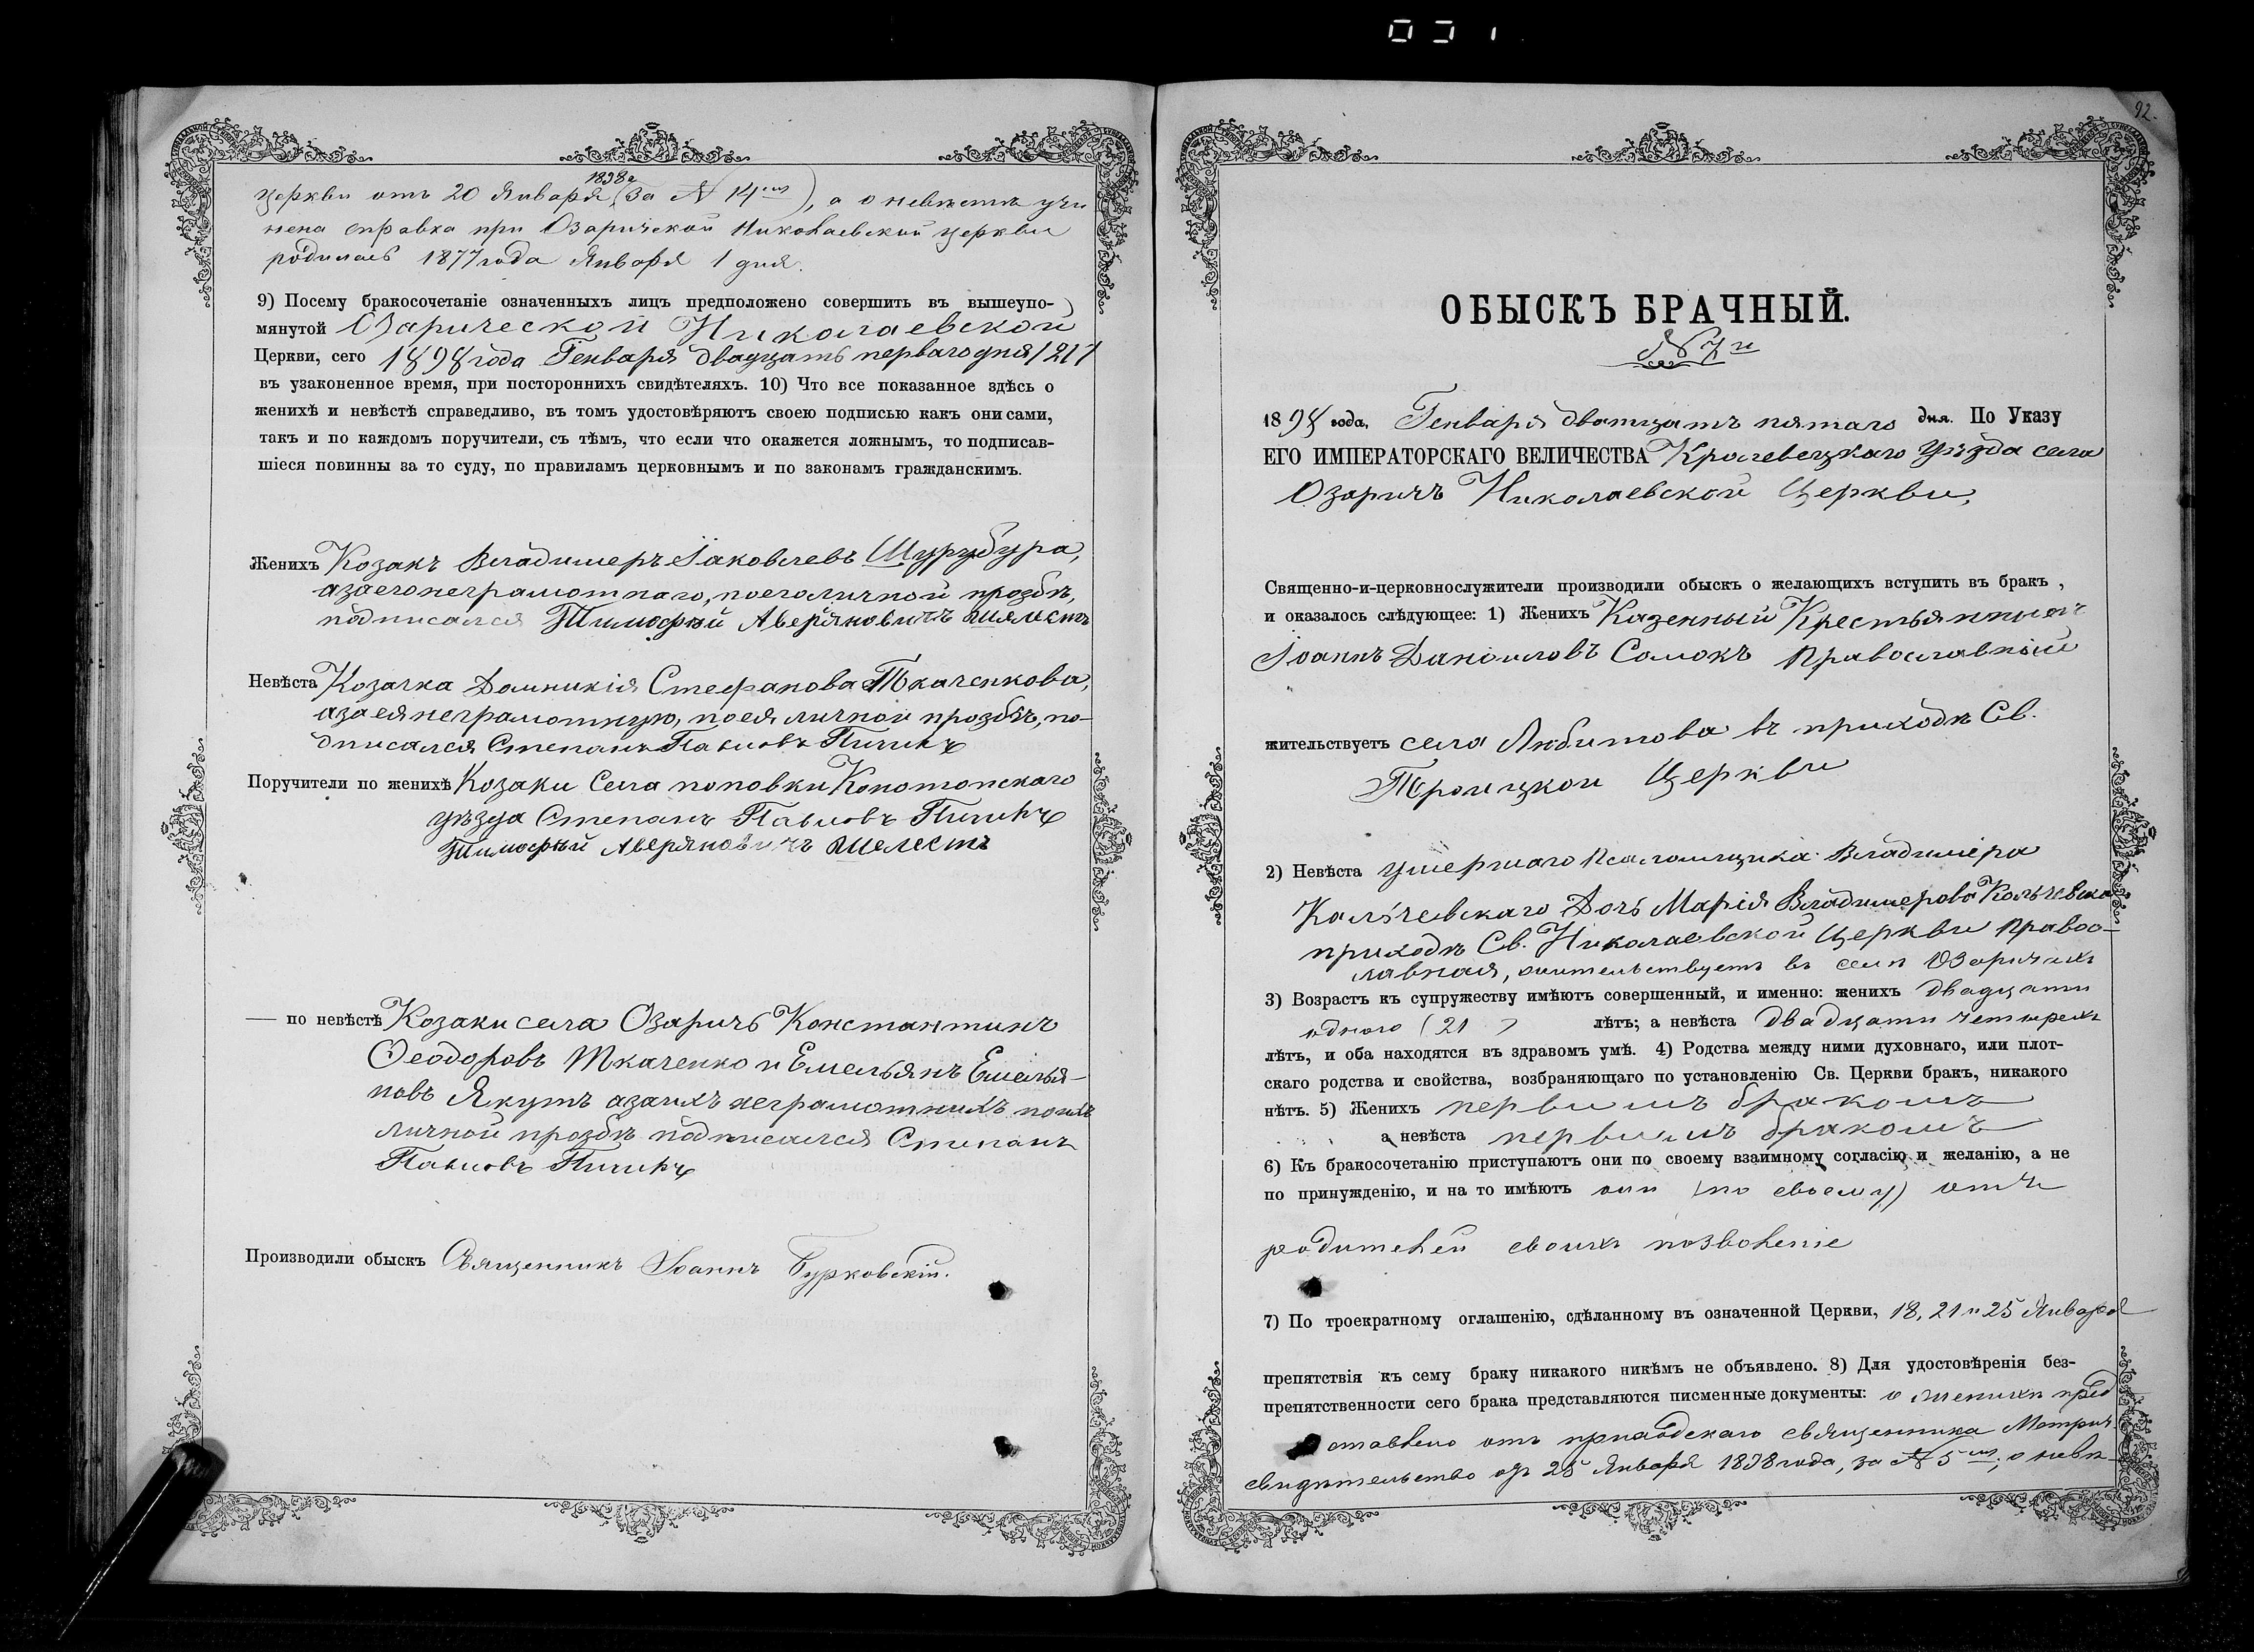 церкви отъ 20 Января 1898 г (за № 14мъ), а о невѣстѣ учи
нена справка при Озарической Николаевской церкви
родилась 1877 года Января 1 дня.
9) Посему бракосочетаніе означенныхъ лицъ предположено совершить въ вышеупо-
мянутой Озарической Николаевской
Церкви, сего 1898 года Генваря двадцать перваго дня /21/
въ узаконенное время, при постороннихъ свидѣтеляхъ. 10) Что все показанное здѣсь о
женихѣ и невѣстѣ справедливо, въ томъ удостовѣряютъ своею подписью какъ они сами,
такъ и по каждомъ поручители, съ тѣмъ, что если что окажется ложнымъ, то подписав-
шіеся повинны за то суду, по правиламъ церковнымъ и по законамъ гражданскимъ.
Женихъ Козакъ Владимеръ Іаковлевъ Шурубура,
азаего неграмотнаго, поеголичной прозбѣ,
подписался Тимофѣй Аверяновичъ Шелестъ
Невѣста Козачка Домникія Стефанова Ткаченкова,
азаея неграмотную, поея личной прозбѣ, по-
дписался Степанъ Павловъ Пичикъ
Поручители по женихѣ Козаки Села поповки Конотопскаго
уѣзда Степанъ Павловъ Пичикъ
Тимофѣй Аверяновичъ Шелестъ
— по невѣстѣ Козаки села Озаричъ Константинъ
Ѳеодоровъ Ткаченко и Емельянъ Емелья-
новъ Якутъ азаихъ неграмотнихъ поихъ
личной прозбѣ подписался Степанъ
Павловъ Пичикъ
Производили обыскъ Священникъ Іоаннъ Бурковскій.
92.
ОБЫСКЪ БРАЧНЫЙ.
№ 7й
1898 года, Генваря дватцать пятаго дня. По Указу
ЕГО ИМПЕРАТОРСКАГО ВЕЛИЧЕСТВА Кролевецкаго Уѣзда села
Озаричъ Николаевской Церкви,
Священно-и-церковнослужители производили обыскъ о желающихъ вступить въ бракъ,
и оказалось слѣдующее: 1) Женихъ Казенный Крестьянинъ
Іоаннъ Даниловъ Сомокъ Православній
жительствуетъ села Любитова въ приходѣ Св.
Троицкой Церкви
2) Невѣста умершаго Псаломщика Владиміра
Кальчевскаго Дочь Марія Владимерова Кольчевска
приходѣ Св. Николаевской Церкви Правос-
лавная, жительствуетъ въ селѣ Озаричахъ
3) Возрастъ къ супружеству имѣютъ совершенный, и именно: женихъ двадцати
одного (21) лѣтъ; а невѣста двадцати четирехъ
лѣтъ, и оба находятся въ здравомъ умѣ. 4) Родства между ними духовнаго, или плот-
скаго родства и свойства, возбраняющаго по установленію Св. Церкви бракъ, никакого
нѣтъ. 5) Женихъ первимъ бракомъ
а невѣста первимъ бракомъ
6) Къ бракосочетанію приступаютъ они по своему взаимному согласію и желанію, а не
по принужденію, и на то имѣютъ они (по своему) отъ
родителей своихъ позволеніе
7) По троекратному оглашенію, сдѣланному въ означенной Церкви, 18, 21 и 25 Января
препятствія къ сему браку никакого никѣмъ не объявлено. 8) Для удостовѣренія без-
препятственности сего брака представляются писменные документы: о женихѣ пред
ставлено отъ приходскаго священника Метрич.
свидѣтельство отъ 25 Января 1898 года, за № 5мъ; о невѣ-